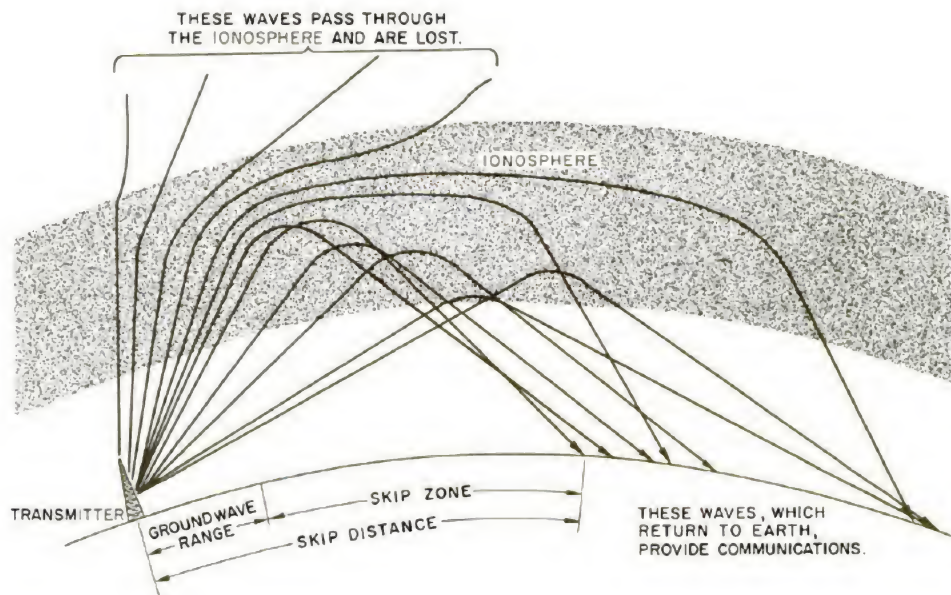 THESE WAVES PASS THROUGH
THE IONOSPHERE AND ARE LOST.
IONOSPHERE
TRANSMITTER
GROUNDWAVE
RANGE
SKIP ZONE
SKIP DISTANCE
THESE WAVES, WHICH
RETURN TO EARTH,
PROVIDE COMMUNICATIONS.